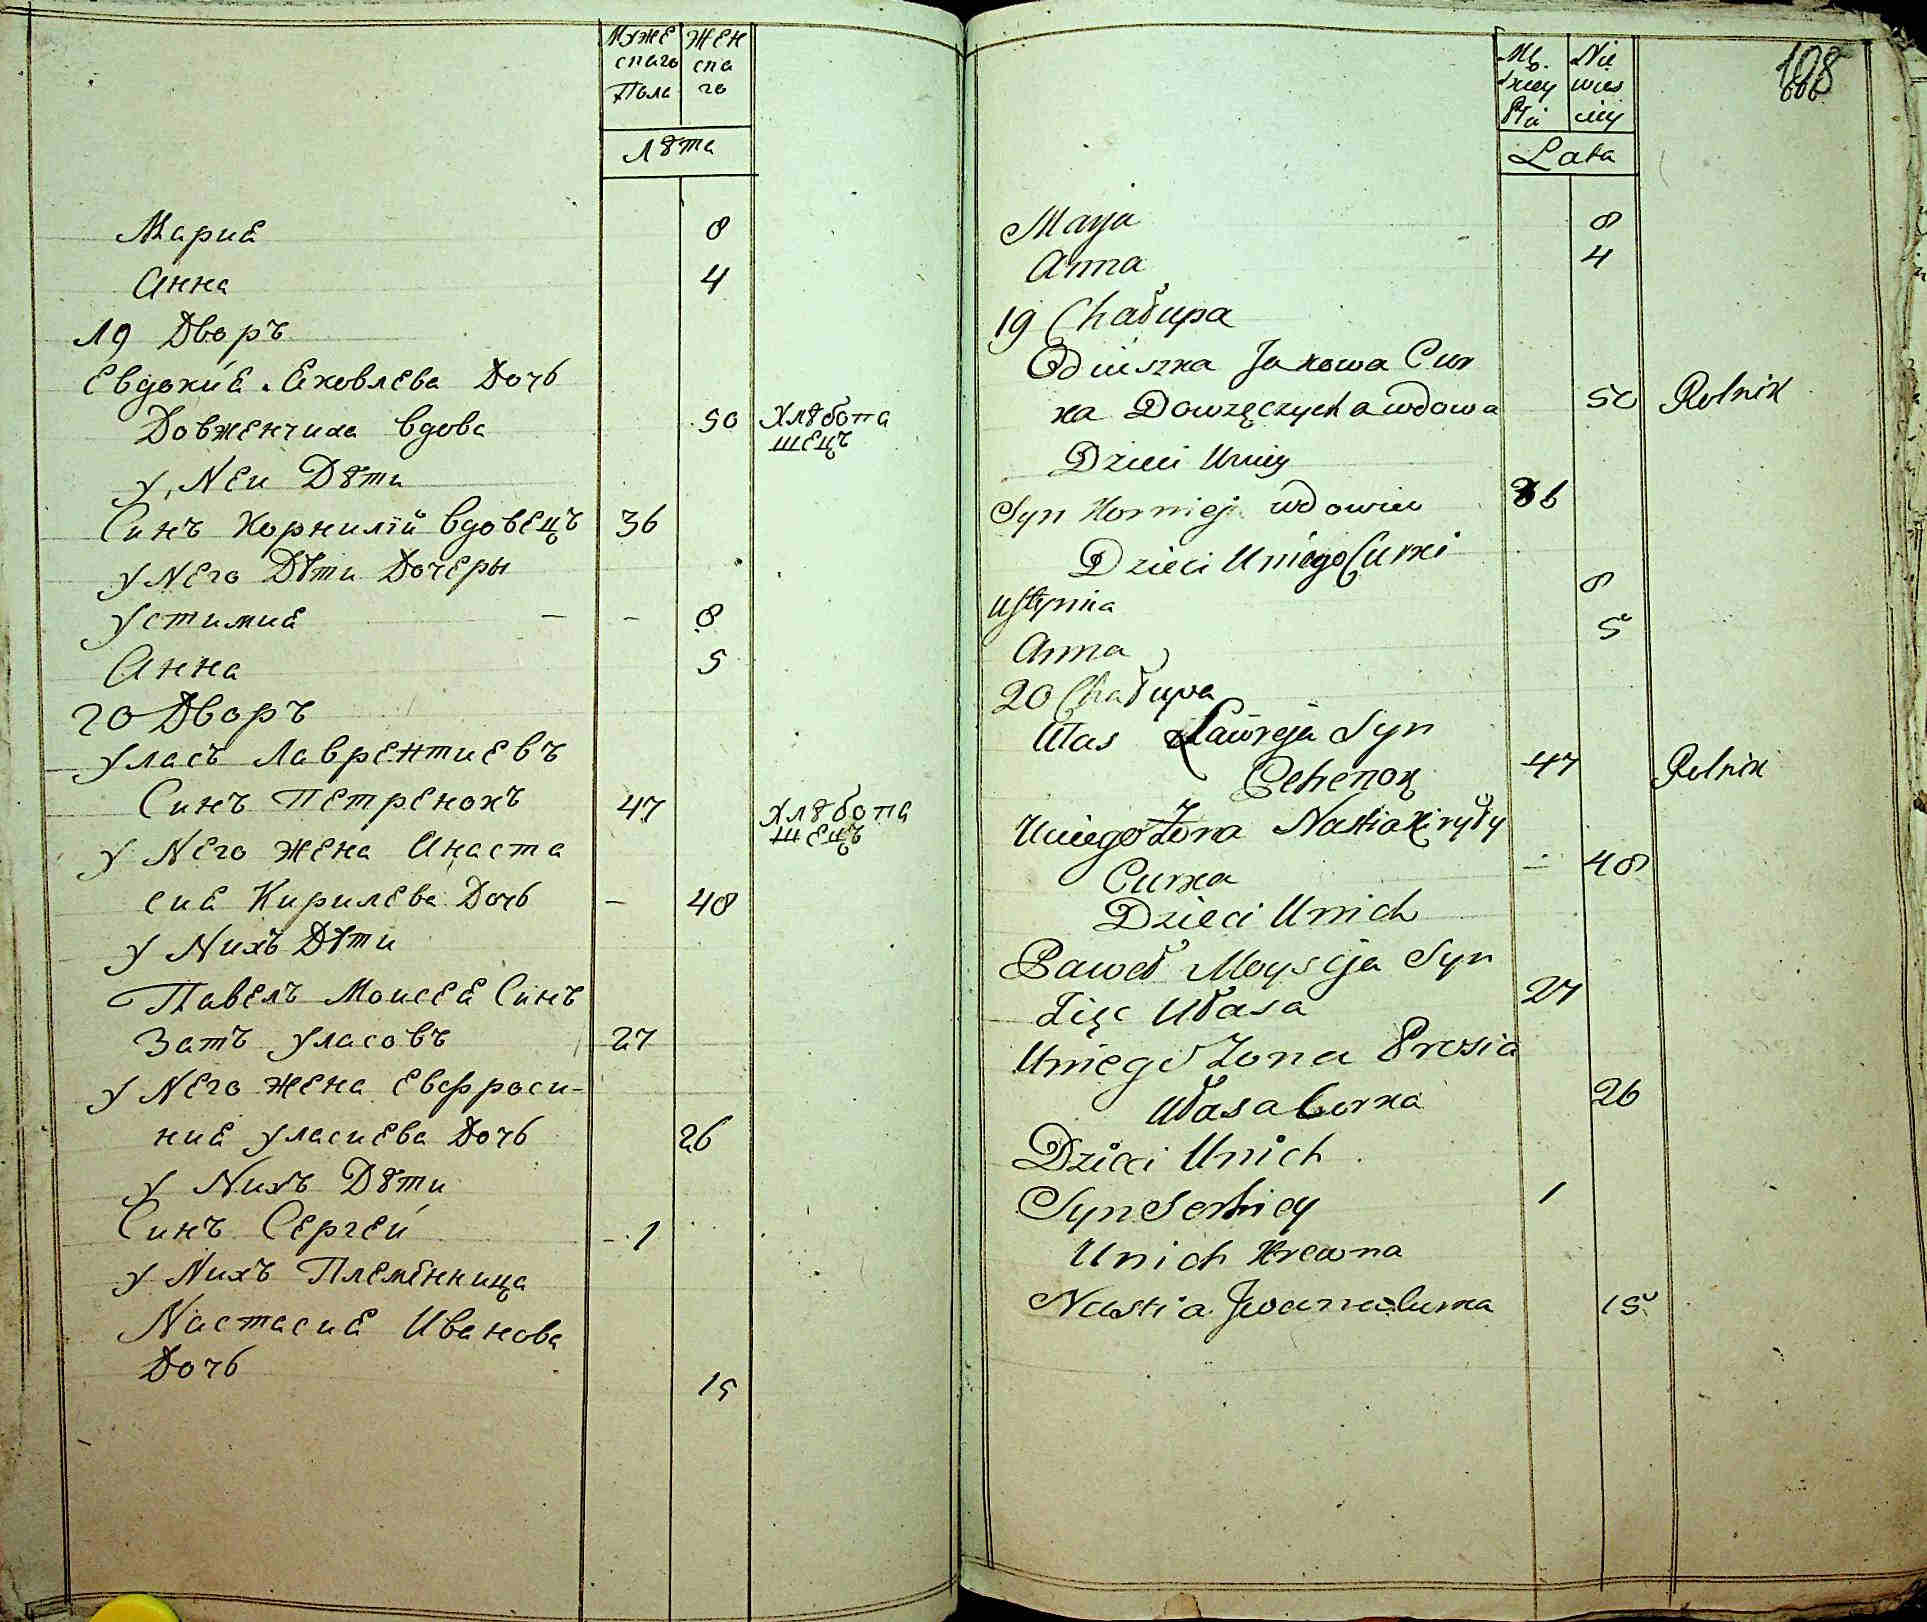 Муже Жен
скаго ска
Пола го
Лѣта
Мариа 8
Анна 4
19 Дворъ
Евдокиа Яковлева Дочь
Довженчиха вдова 50 Хлѣбопа
шецъ
у Неи Дѣти
Синъ Корнилїй вдовецъ 36
у Него Дѣти Дочеры
Устимиа - - 8
Анна 5
20 Дворъ
Уласъ Лаврентиевъ
Синъ Петренокъ 47 Хлѣбопа
шецъ
у Него жена Анаста
сиа Кирилева Дочь - 48
у Нихъ Дѣти
Павелъ Моисеа Синъ
Зать Уласовъ 27
у Него жена Евфроси-
ниа Уласиева Дочь 26
у Нихъ Дѣти
Синъ Сергеи 1
у Нихъ Племѣнница
Настасиа Иванова
Дочь 15
Nie
wies
Lata
Marja 8
Anna 4
19 Chałupa
Jakowa Cur
ka Dowzęczycha wdowa 50 Rolnik
Dzieci Uniey
Syn Korniej wdowiec 36
Dzieci Uniego Curki
Ustynia 8
Anna 5
20 Chałupa
Ułas Ławreja Syn
47 Rolnik
Uniego Żona Nastia Kiryły
Curka - 48
Dzieci Unich
Paweł Moysieja Syn
Zięc Ułasa 27
Uniego Żona Prosia
Ułasa Corka 26
Dzieci Unich
Syn Serhiey 1
Unich Krewna
Nastia Jwana Curka 15